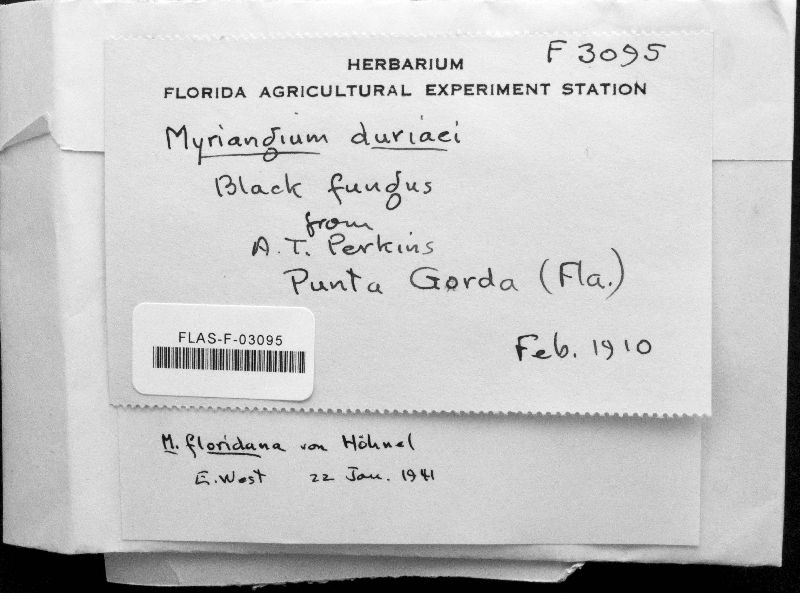 HERBARIUM F 3095
FLORIDA AGRICULTURAL EXPERIMENT STATION
Myriangium duriaei
Black fungus
from
A. T. Perkins
Punta Gorda (Fla.)
FLAS-F-03095
Feb. 1910
M. floridana von Höhnel
E. West 22 Jan. 1941